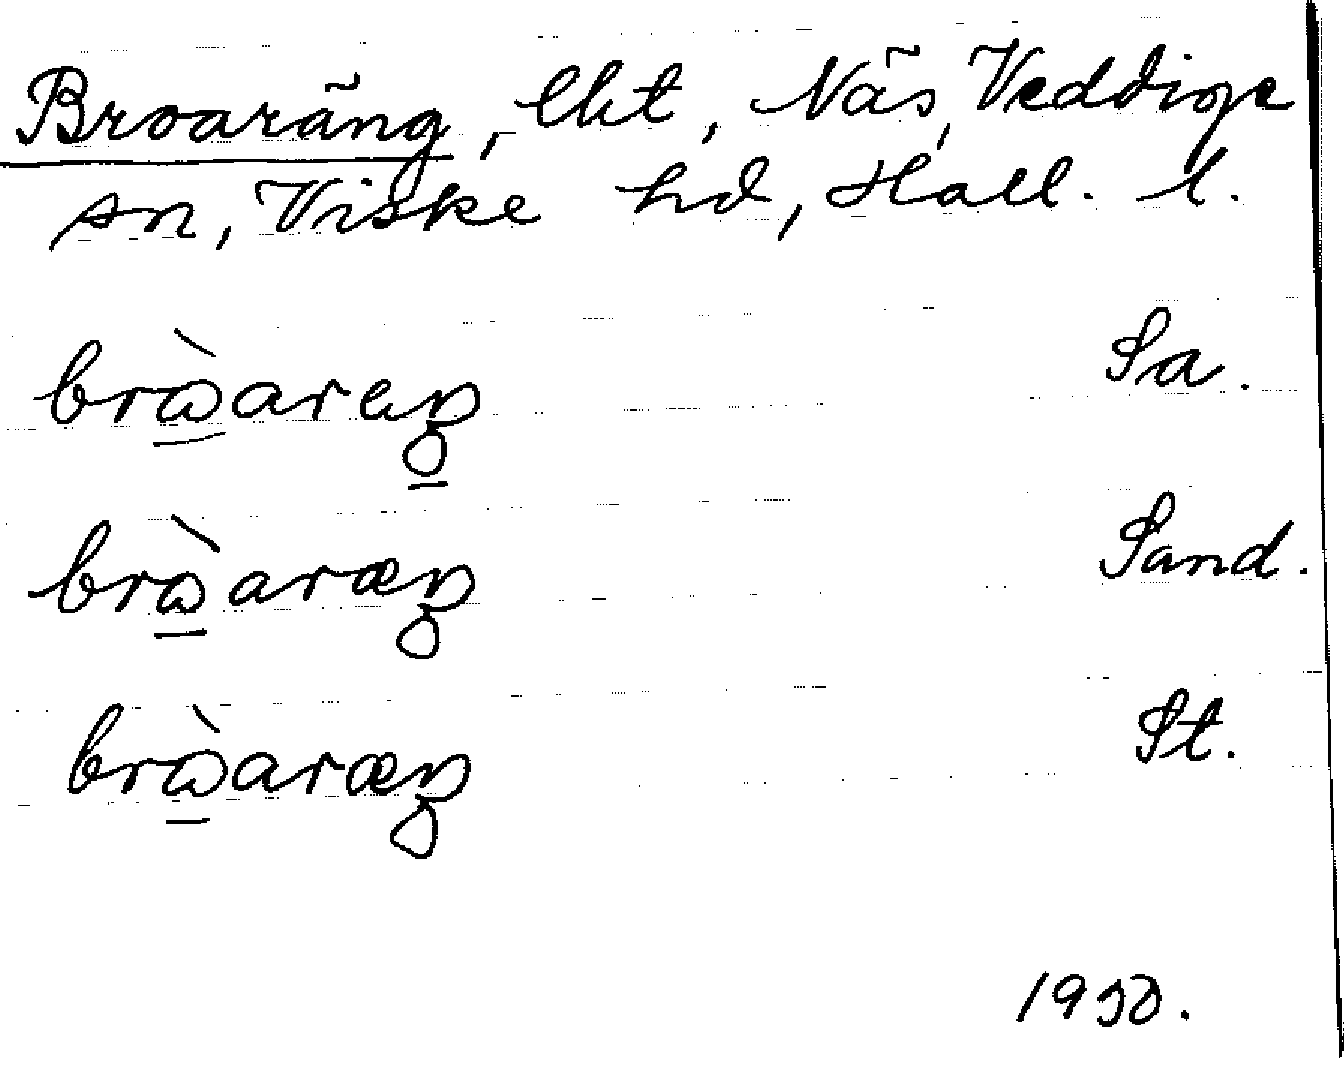 Broaräng, lht, Näs, Veddige
sn, Viske hd, Hall. l.
brɷ̀areŋ Sa.
brɷ̀aræŋ Sand.
brɷ̀aræŋ St.
1930.